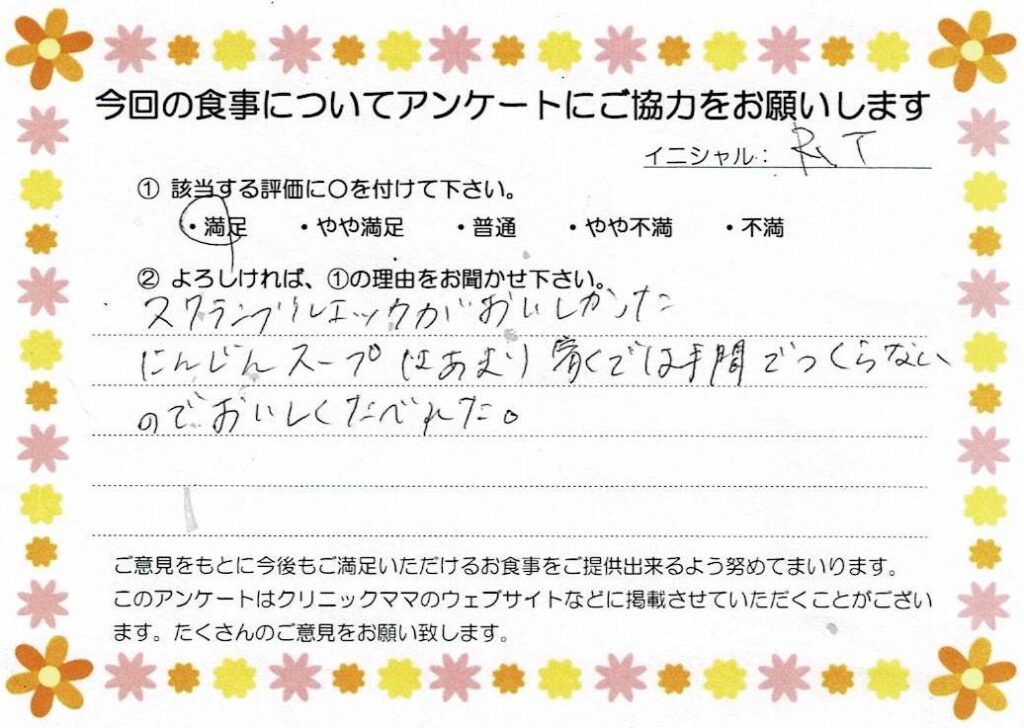 今回の食事についてアンケートにご協力をお願いします
イニシャル： R T
① 該当する評価に○を付けて下さい。
・満足 ・やや満足 ・普通 ・やや不満 ・不満
② よろしければ、①の理由をお聞かせ下さい。
スクランブルエッグがおいしかった
にんじんスープはあまり家では手間でつくらない
のでおいしくたべれた。
ご意見をもとに今後もご満足いただけるお食事をご提供出来るよう努めてまいります。
このアンケートはクリニックママのウェブサイトなどに掲載させていただくことがござい
ます。たくさんのご意見をお願い致します。